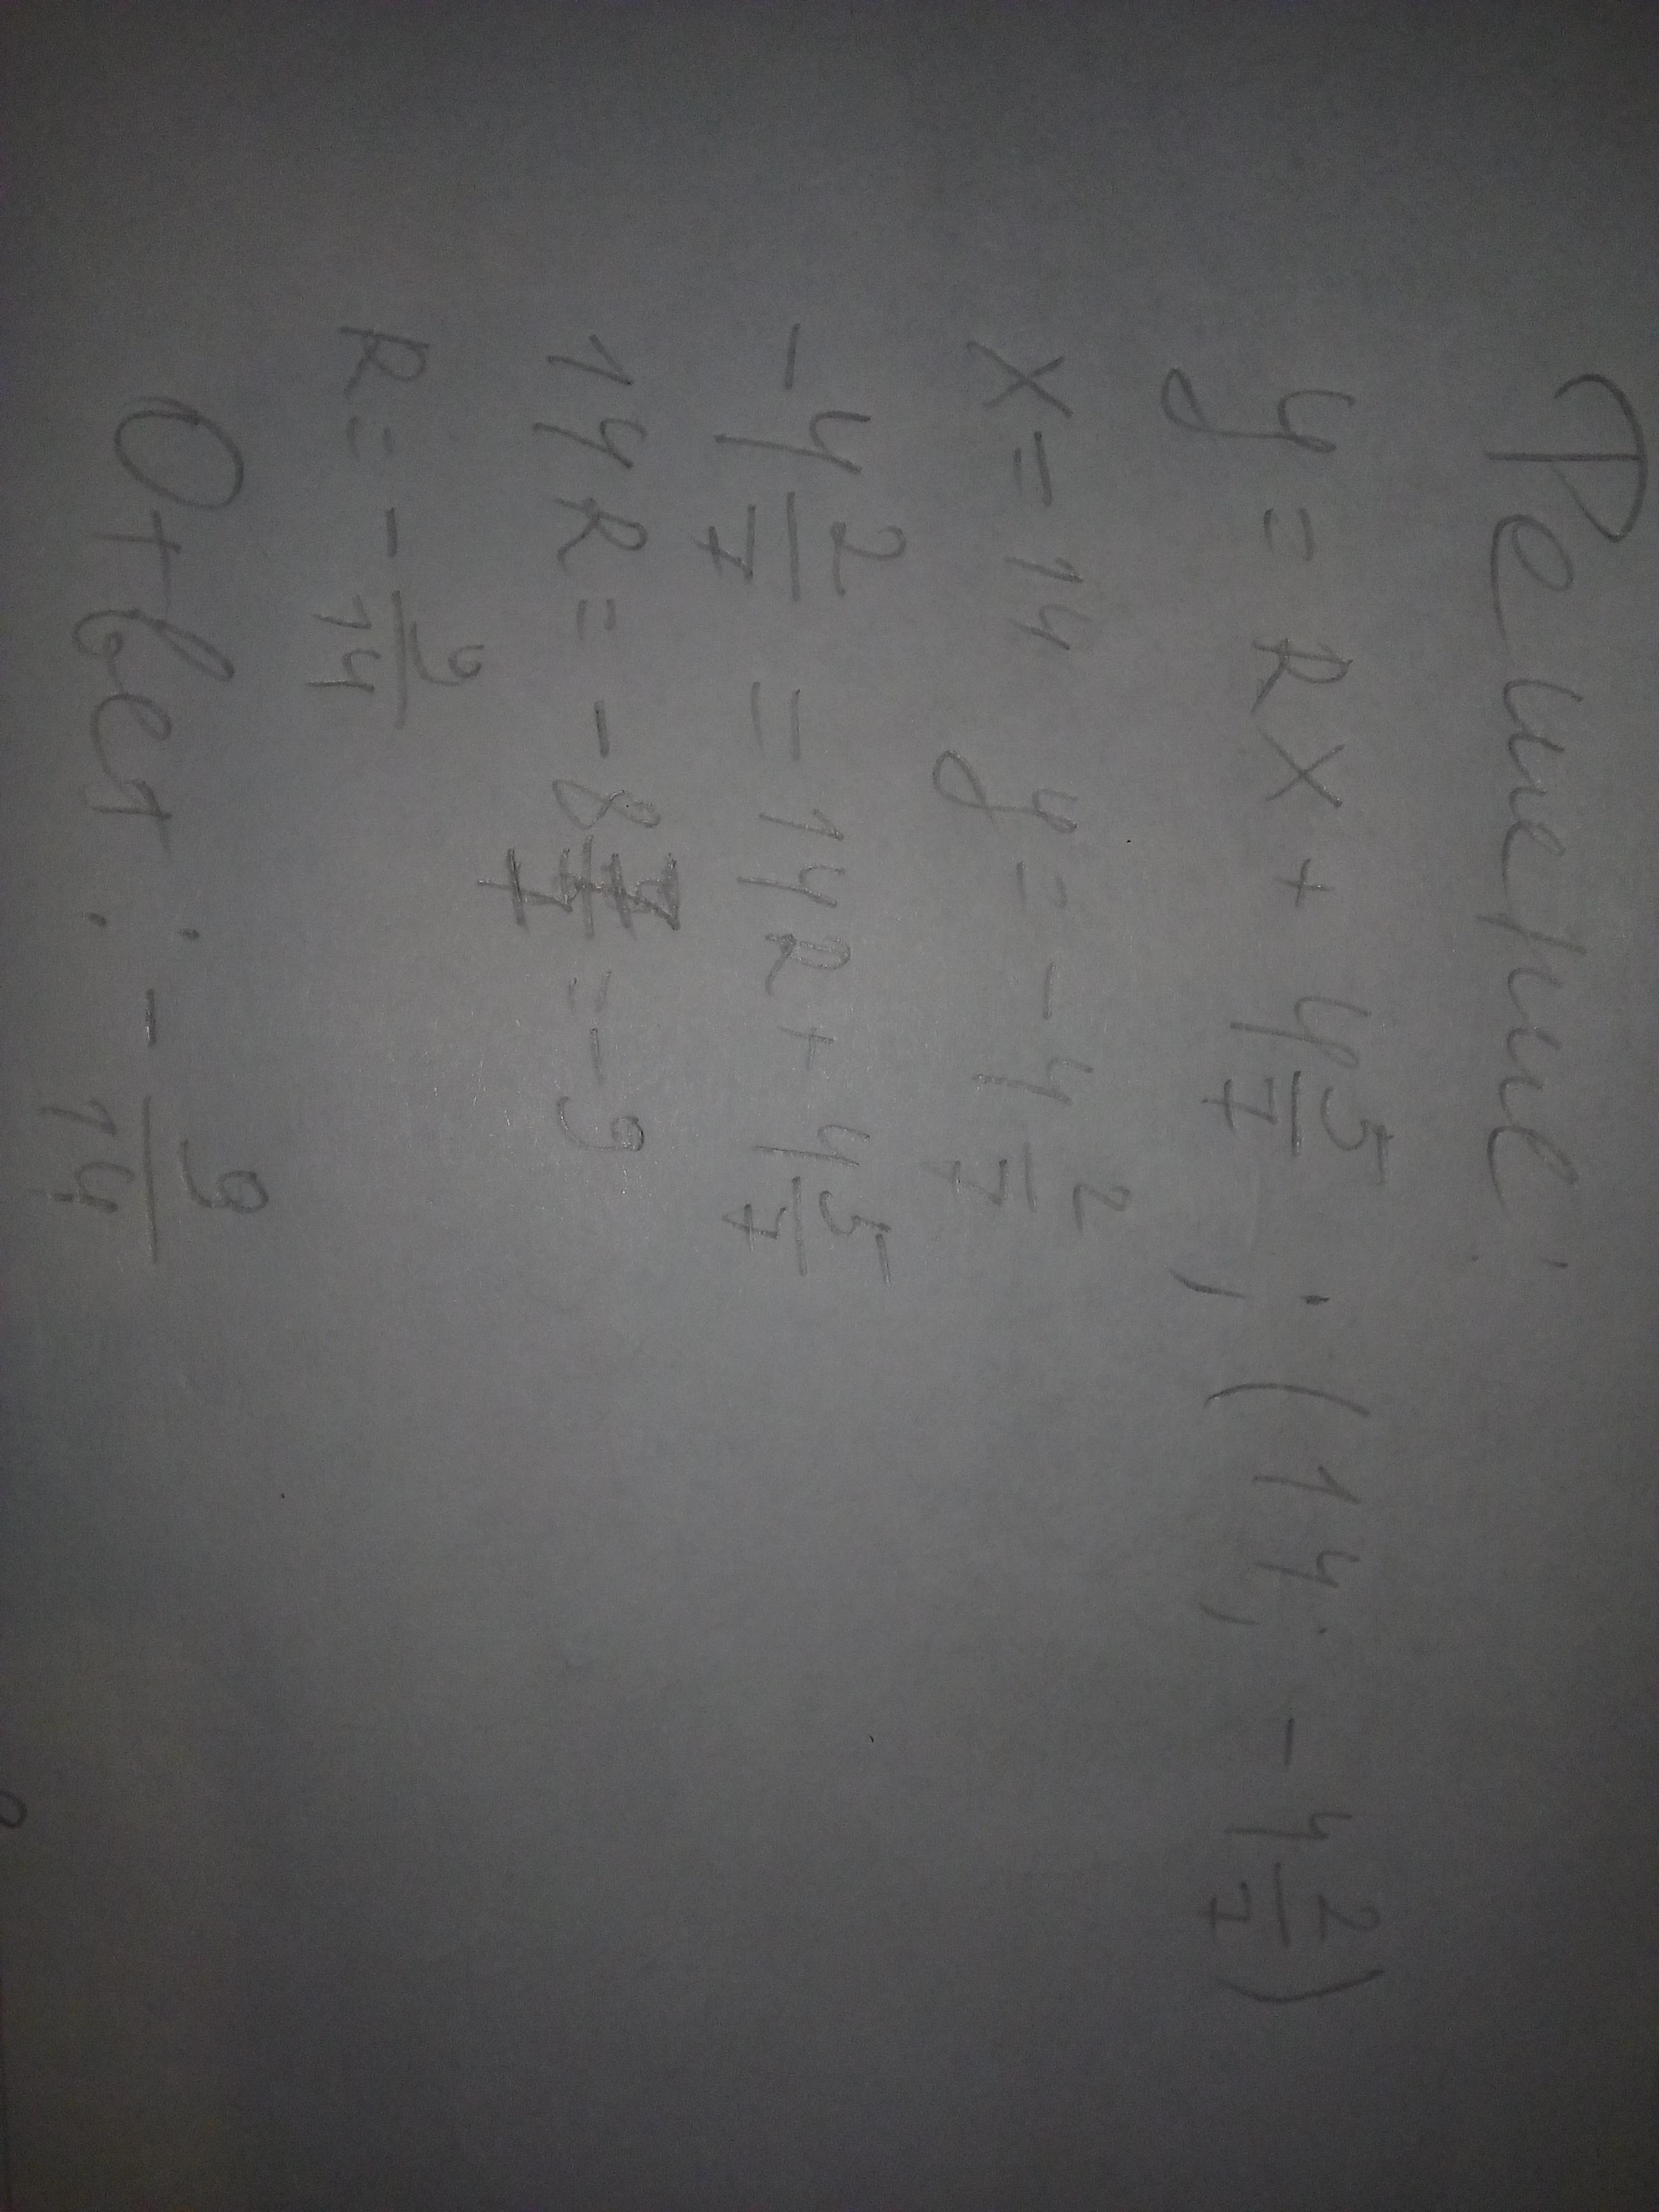 Решение:
y = kx + 4 5/7 ; (14; -4 2/7)
x = 14 y = -4 2/7
-4 2/7 = 14k + 4 5/7
14k = -8 7/7 = -9
k = - 9/14
Ответ: - 9/14